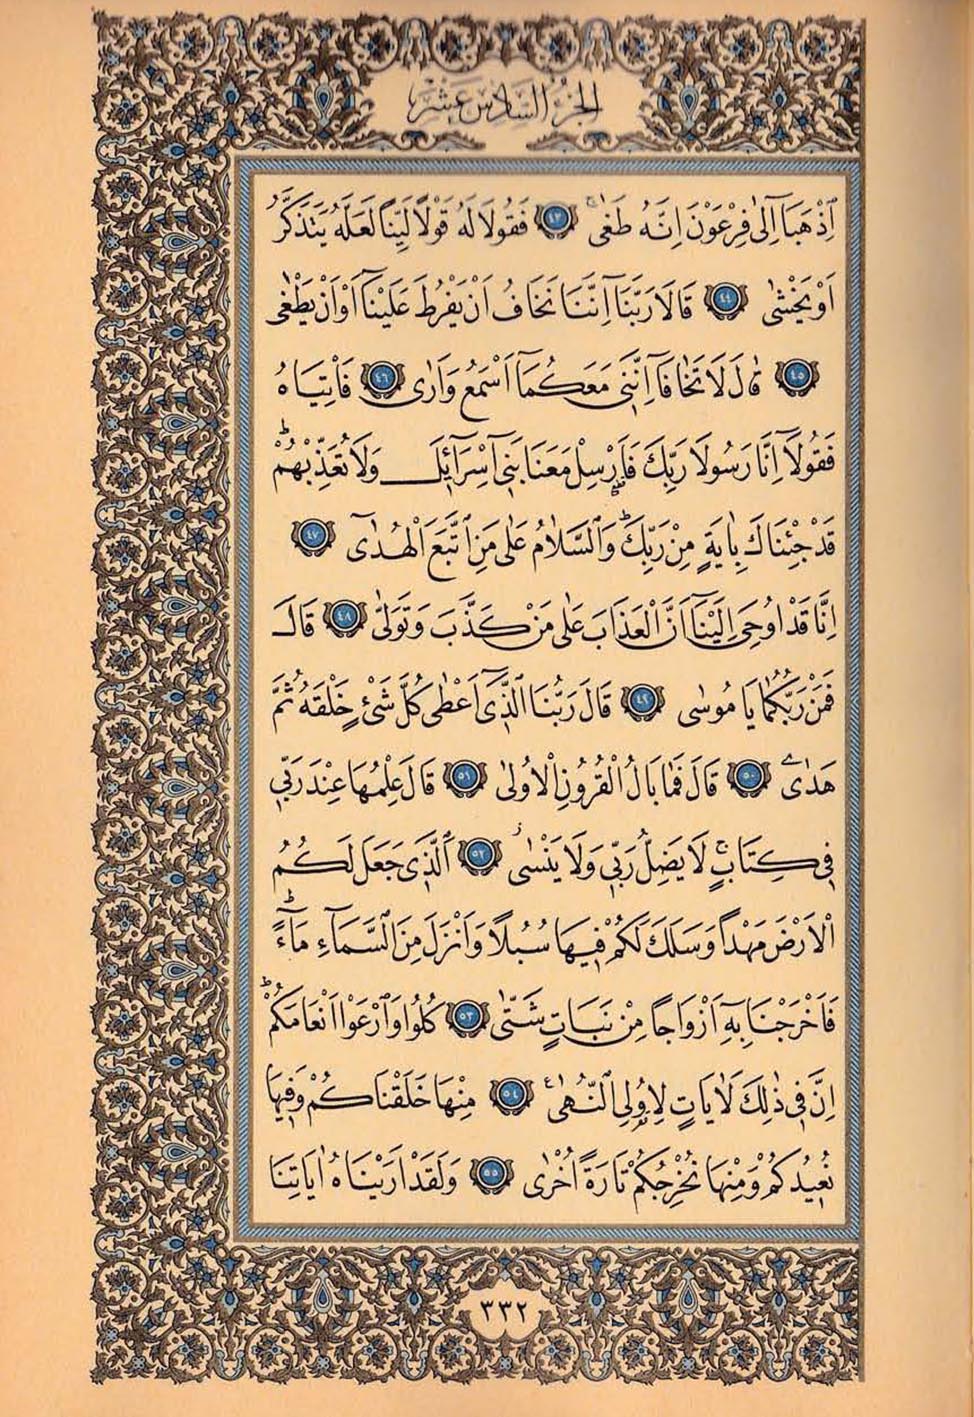 الجزء السادس عشر
اِذْهَبَآ اِلٰى فِرْعَوْنَ اِنَّهُ طَغٰى ۚ ٤٣ فَقُولَا لَهُ قَوْلًا لَيِّنًا لَعَلَّهُ يَتَذَكَّرُ
اَوْ يَخْشٰى ٤٤ قَالَا رَبَّنَآ اِنَّنَا نَخَافُ اَنْ يَفْرُطَ عَلَيْنَآ اَوْ اَنْ يَطْغٰى
٤٥ قَالَ لَا تَخَافَآ اِنَّنِى مَعَكُمَآ اَسْمَعُ وَاَرٰى ٤٦ فَأْتِيَاهُ
فَقُولَآ اِنَّا رَسُولَا رَبِّكَ فَاَرْسِلْ مَعَنَا بَنِىٓ اِسْرَآئِلَ وَلَا تُعَذِّبْهُمْ ۜ
قَدْ جِئْنَاكَ بِاٰيَةٍ مِنْ رَبِّكَ ۜ وَالسَّلَامُ عَلٰى مَنِ اتَّبَعَ الْهُدٰى ٤٧
اِنَّا قَدْ اُوحِىَ اِلَيْنَآ اَنَّ الْعَذَابَ عَلٰى مَنْ كَذَّبَ وَتَوَلّٰى ٤٨ قَالَ
فَمَنْ رَبُّكُمَا يَا مُوسٰى ٤٩ قَالَ رَبُّنَا الَّذِىٓ اَعْطٰى كُلَّ شَىْءٍ خَلْقَهُ ثُمَّ
هَدٰى ٥٠ قَالَ فَمَا بَالُ الْقُرُونِ الْاُولٰى ٥١ قَالَ عِلْمُهَا عِنْدَ رَبِّى
فِى كِتَابٍ ۚ لَا يَضِلُّ رَبِّى وَلَا يَنْسٰى ۘ ٥٢ اَلَّذِى جَعَلَ لَكُمُ
الْاَرْضَ مَهْدًا وَسَلَكَ لَكُمْ فِيهَا سُبُلًا وَاَنْزَلَ مِنَ السَّمَآءِ مَآءً ۜ
فَاَخْرَجْنَا بِهِٓ اَزْوَاجًا مِنْ نَبَاتٍ شَتّٰى ٥٣ كُلُوا وَارْعَوْا اَنْعَامَكُمْ ۜ
اِنَّ فِى ذٰلِكَ لَاٰيَاتٍ لِاُولِى النُّهٰى ۟ ٥٤ مِنْهَا خَلَقْنَاكُمْ وَفِيهَا
نُعِيدُكُمْ وَمِنْهَا نُخْرِجُكُمْ تَارَةً اُخْرٰى ٥٥ وَلَقَدْ اَرَيْنَاهُ اٰيَاتِنَا
٣٣٢